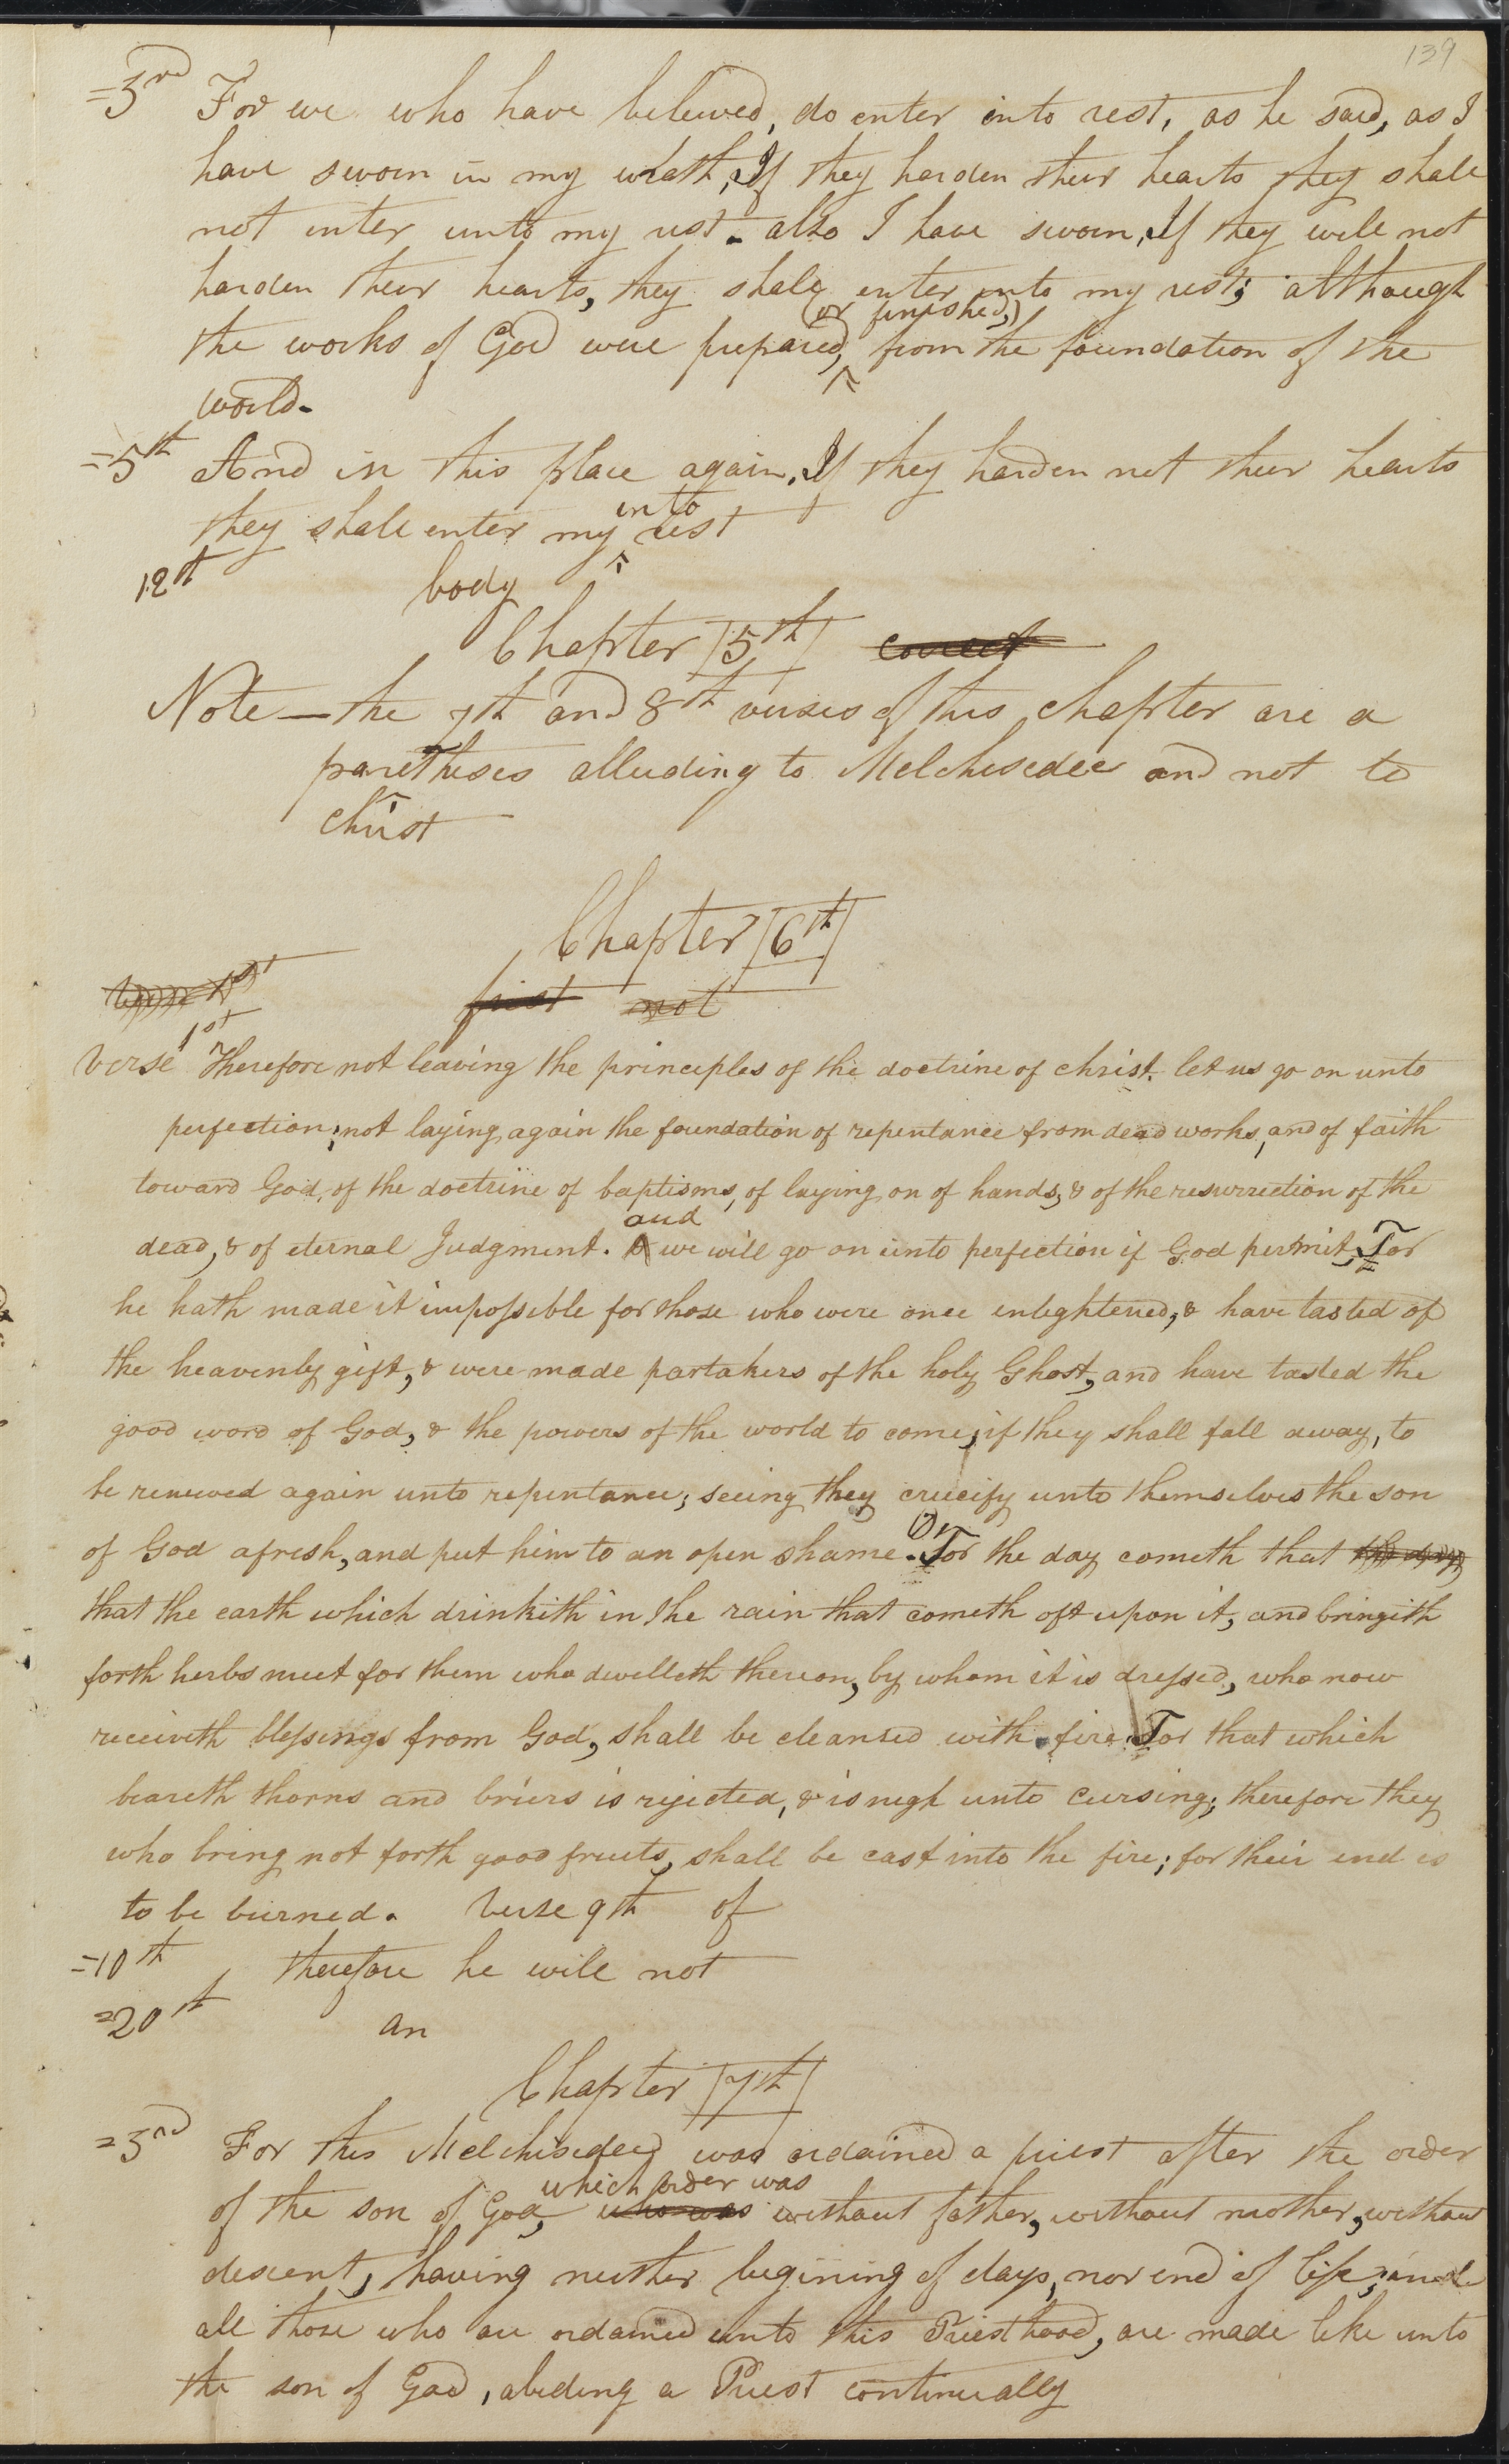 139
=3rd For we who have believed, do enter into rest, as he said, as I
have sworn in my wrath, If they harden their hearts they shall
not enter into my rest. also I have sworn, If they will not
harden their hearts, they shall enter into my rest; although
(or finished,)
the works of God were prepared, ^ from the foundation of the
world.
=5th And in this place again, If they harden not their hearts
into
they shall enter my ^ rest
12th body
Chapter 5th correct
Note — the 7th and 8th verses of this chapter are a
parethesis alluding to Melchisedec and not to
christ
Chapter 6th
verse 1st first not
1st
verse Therefore not leaving the principles of the doctrine of christ. let us go on unto
perfection; not laying again the foundation of repentance from dead works, and of faith
toward God, of the doctrine of baptisms, of laying on of hands, & of the resurrection of the
and
dead, & of eternal Judgment. & we will go on unto perfection if God permit, For
he hath made it impossible for those who were once enlightened, & have tasted of
the heavenly gift, & were made partakers of the holy Ghost, and have tasted the
good word of God, & the powers of the world to come; if they shall fall away, to
be renewed again unto repentance; seeing they crucify unto themselves the son
of God afresh, and put him to an open shame. For the day cometh that the day
that the earth which drinkith in the rain that cometh oft upon it, and bringith
forth herbs meet for them who dwelleth thereon, by whom it is dressed, who now
receiveth blessings from God, shall be cleansed with fire. For that which
beareth thorns and briers is rejected, & is nigh unto cursing; therefore they
who bring not forth good fruits, shall be cast into the fire; for their end is
to be burned. verse 9th of
=10th therefore he will not
=20th an
Chapter 7th
=3rd For this Melchisedec was ordained a priest after the order
which order was
of the son of God, who was without father, without mother, without
descent, having neither begining of days, nor end of life; and
all those who are ordained unto this Priesthood, are made like unto
the son of God, abiding a Priest continually